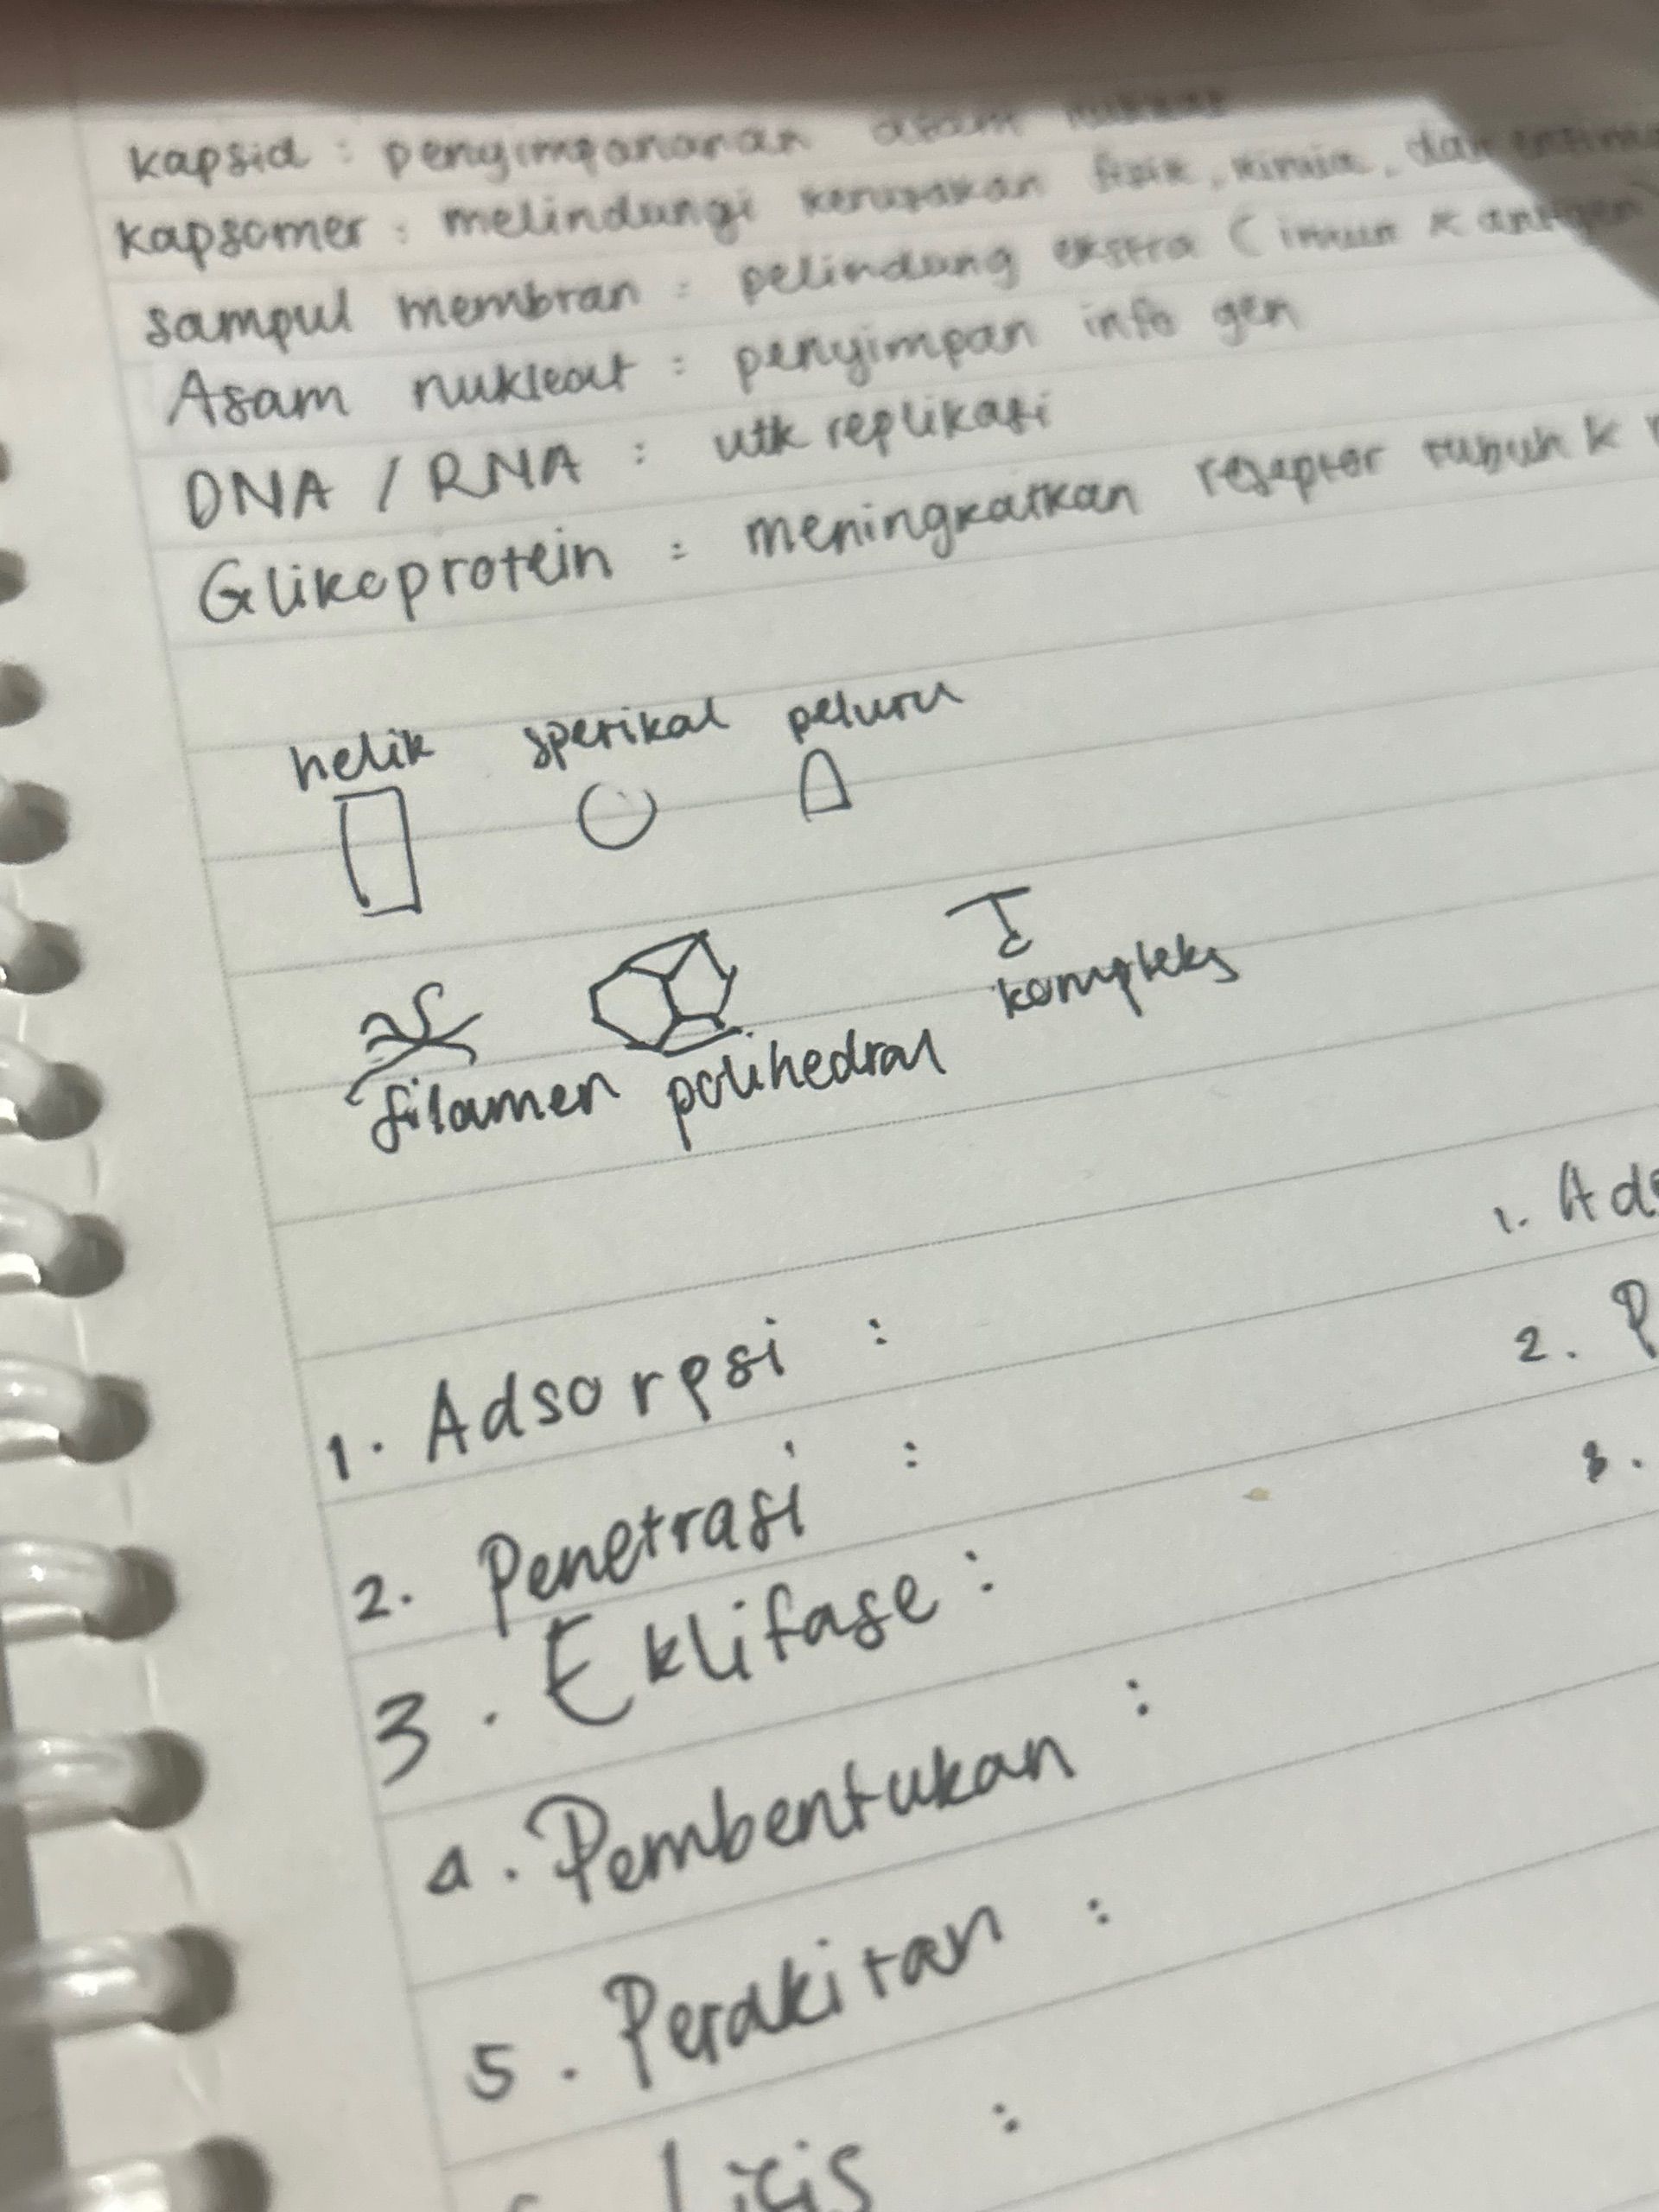 kapsid : penyimpanan asam nukleat
kapsomer : melindungi kerusakan fisik, kimia, dan enzima
sampul membran : pelindung ekstra (imun & antigen)
Asam nukleat : penyimpan info gen
DNA / RNA : utk replikasi
Glikoprotein : meningkatkan reseptor tubuh k
helik sperikal peluru
kompleks
filamen polihedral
1. Ads
1. Adsorpsi :
2. P
2. Penetrasi :
3.
3. Eklifase :
4. Pembentukan :
5. Perakitan :
Lisis :